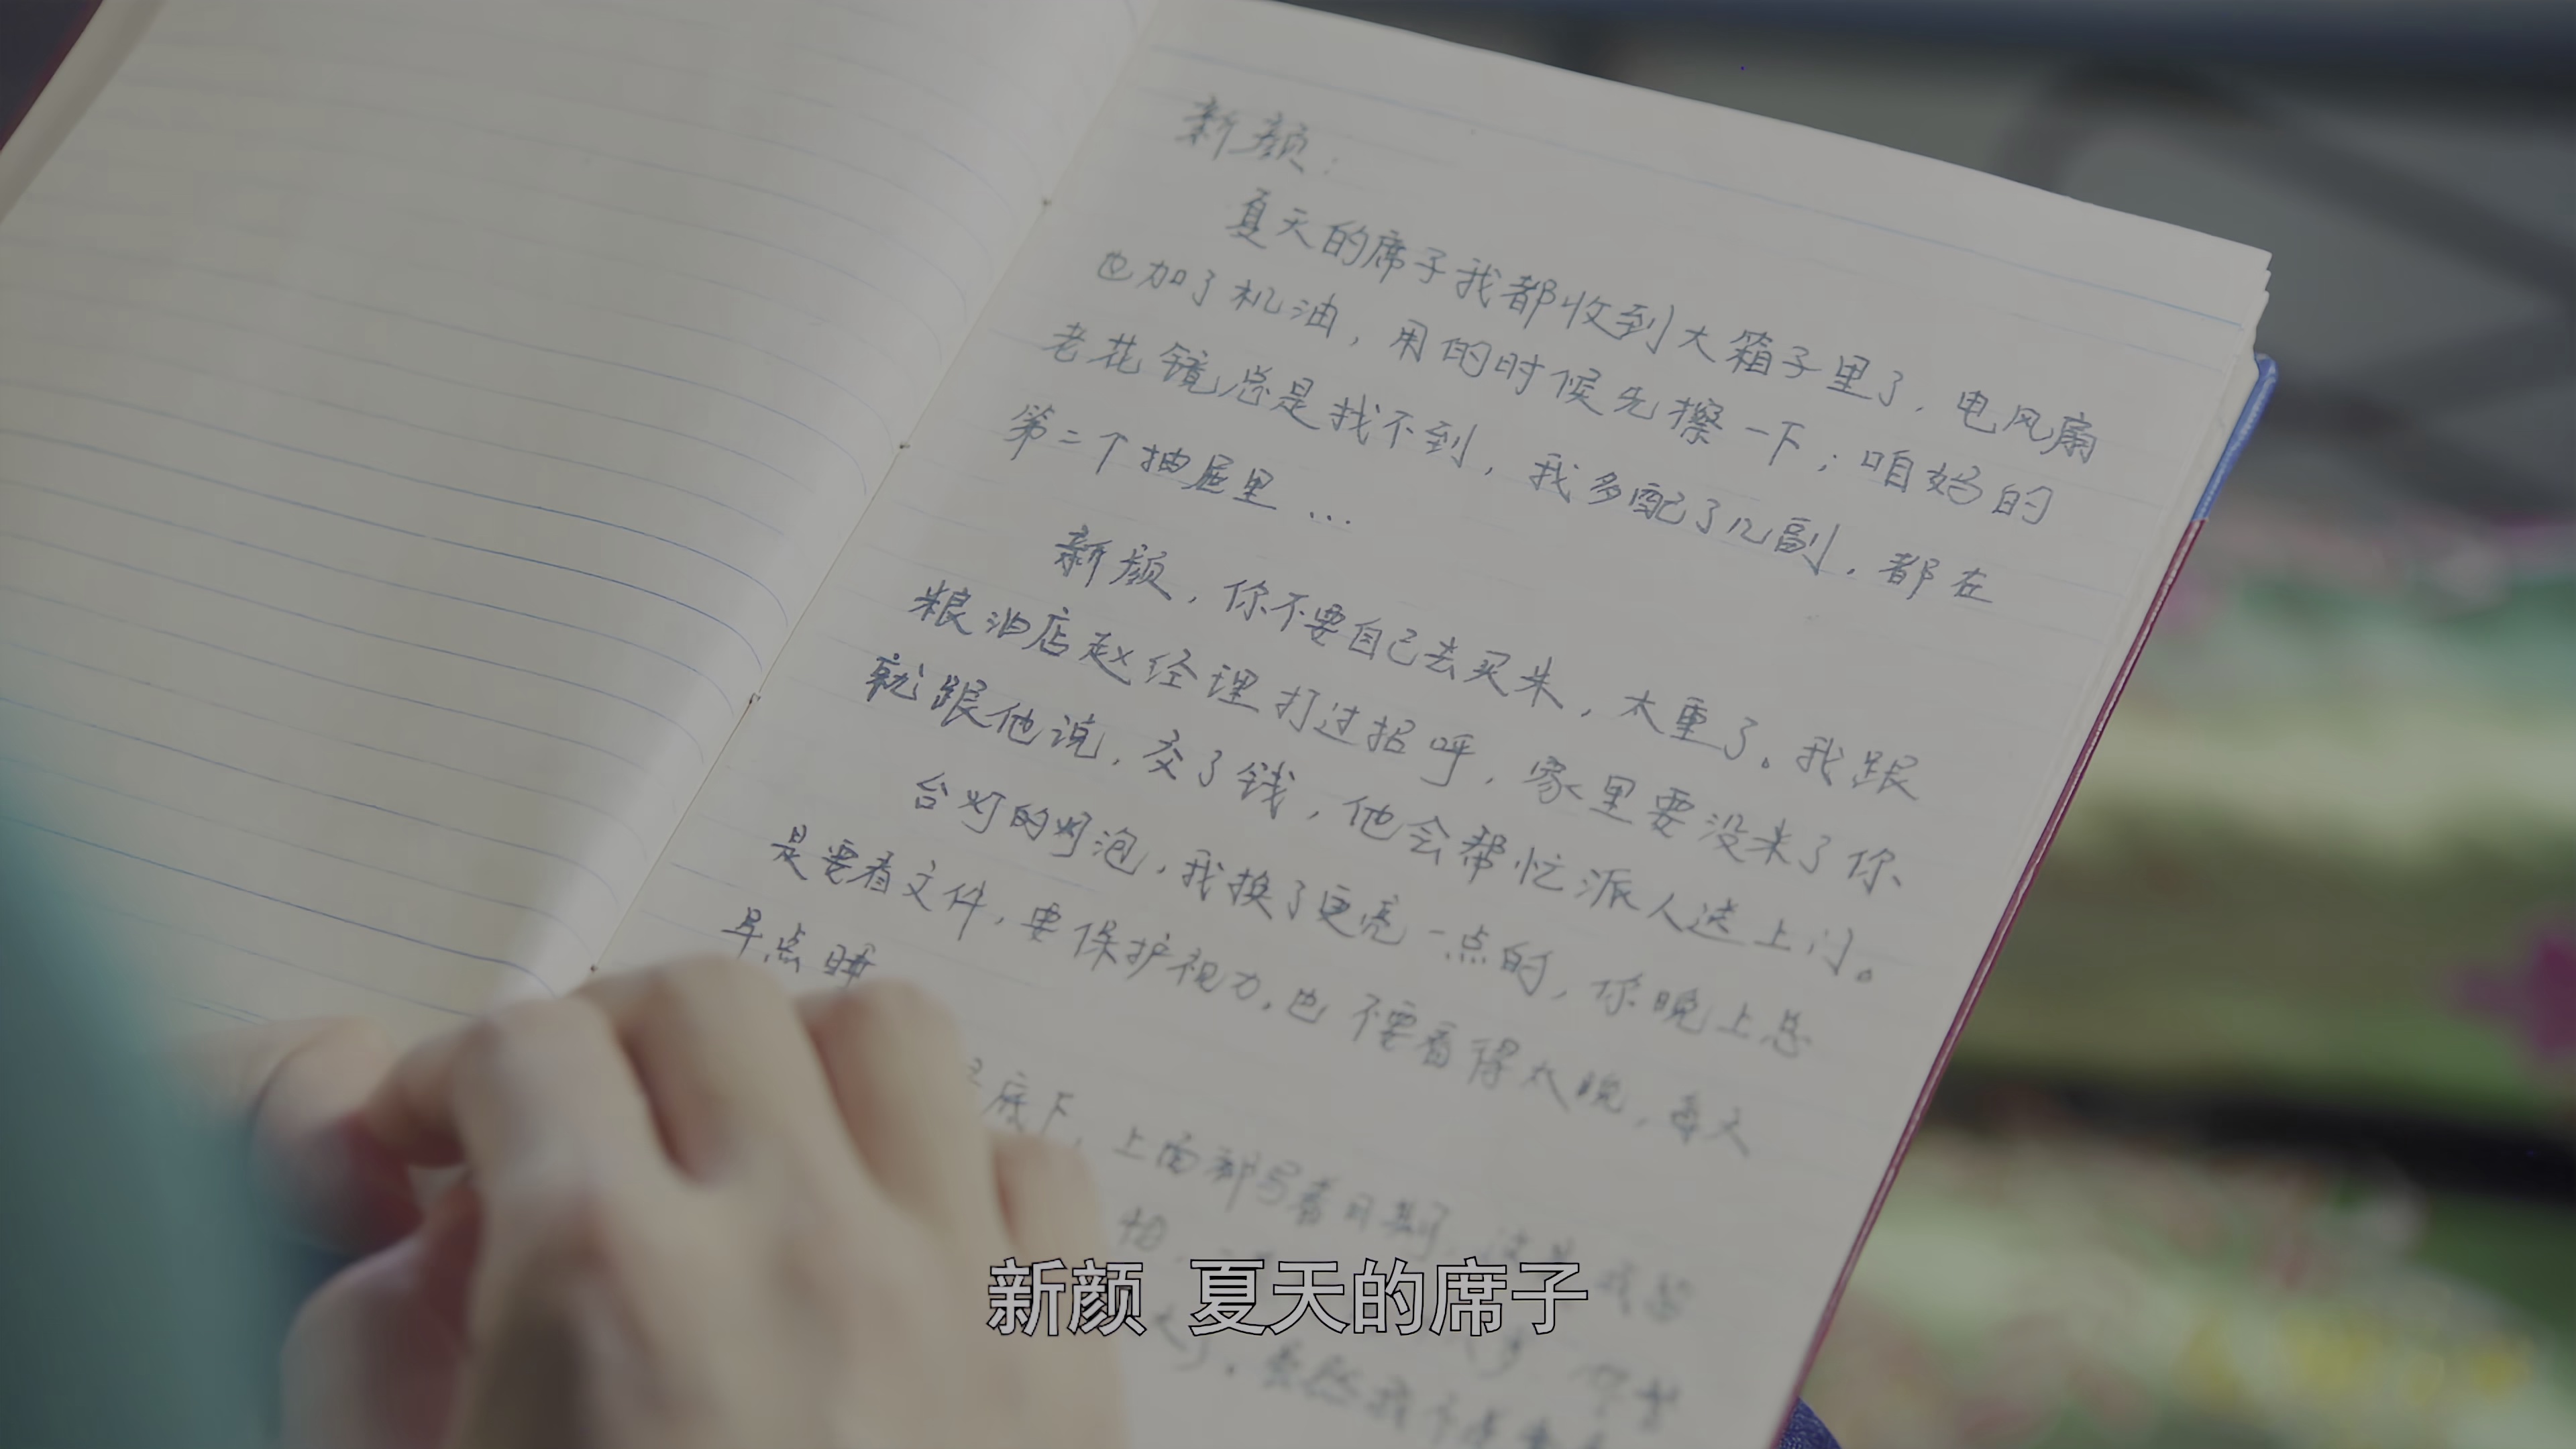 新颜：
夏天的席子我都收到大箱子里了，电风扇
也加了机油，用的时候先擦一下；咱妈的
老花镜总是找不到，我多配了几副，都在
第二个抽屉里…
新颜，你不要自己去买米，太重了。我跟
粮油店赵经理打过招呼，家里要没米了你
就跟他说，交了钱，他会帮忙派人送上门。
台灯的灯泡，我换了更亮一点的，你晚上总
是要看文件，要保护视力，也不要看得太晚，每天
早点睡
底下，上面都写着日期，
怕
虽然我
新颜 夏天的席子